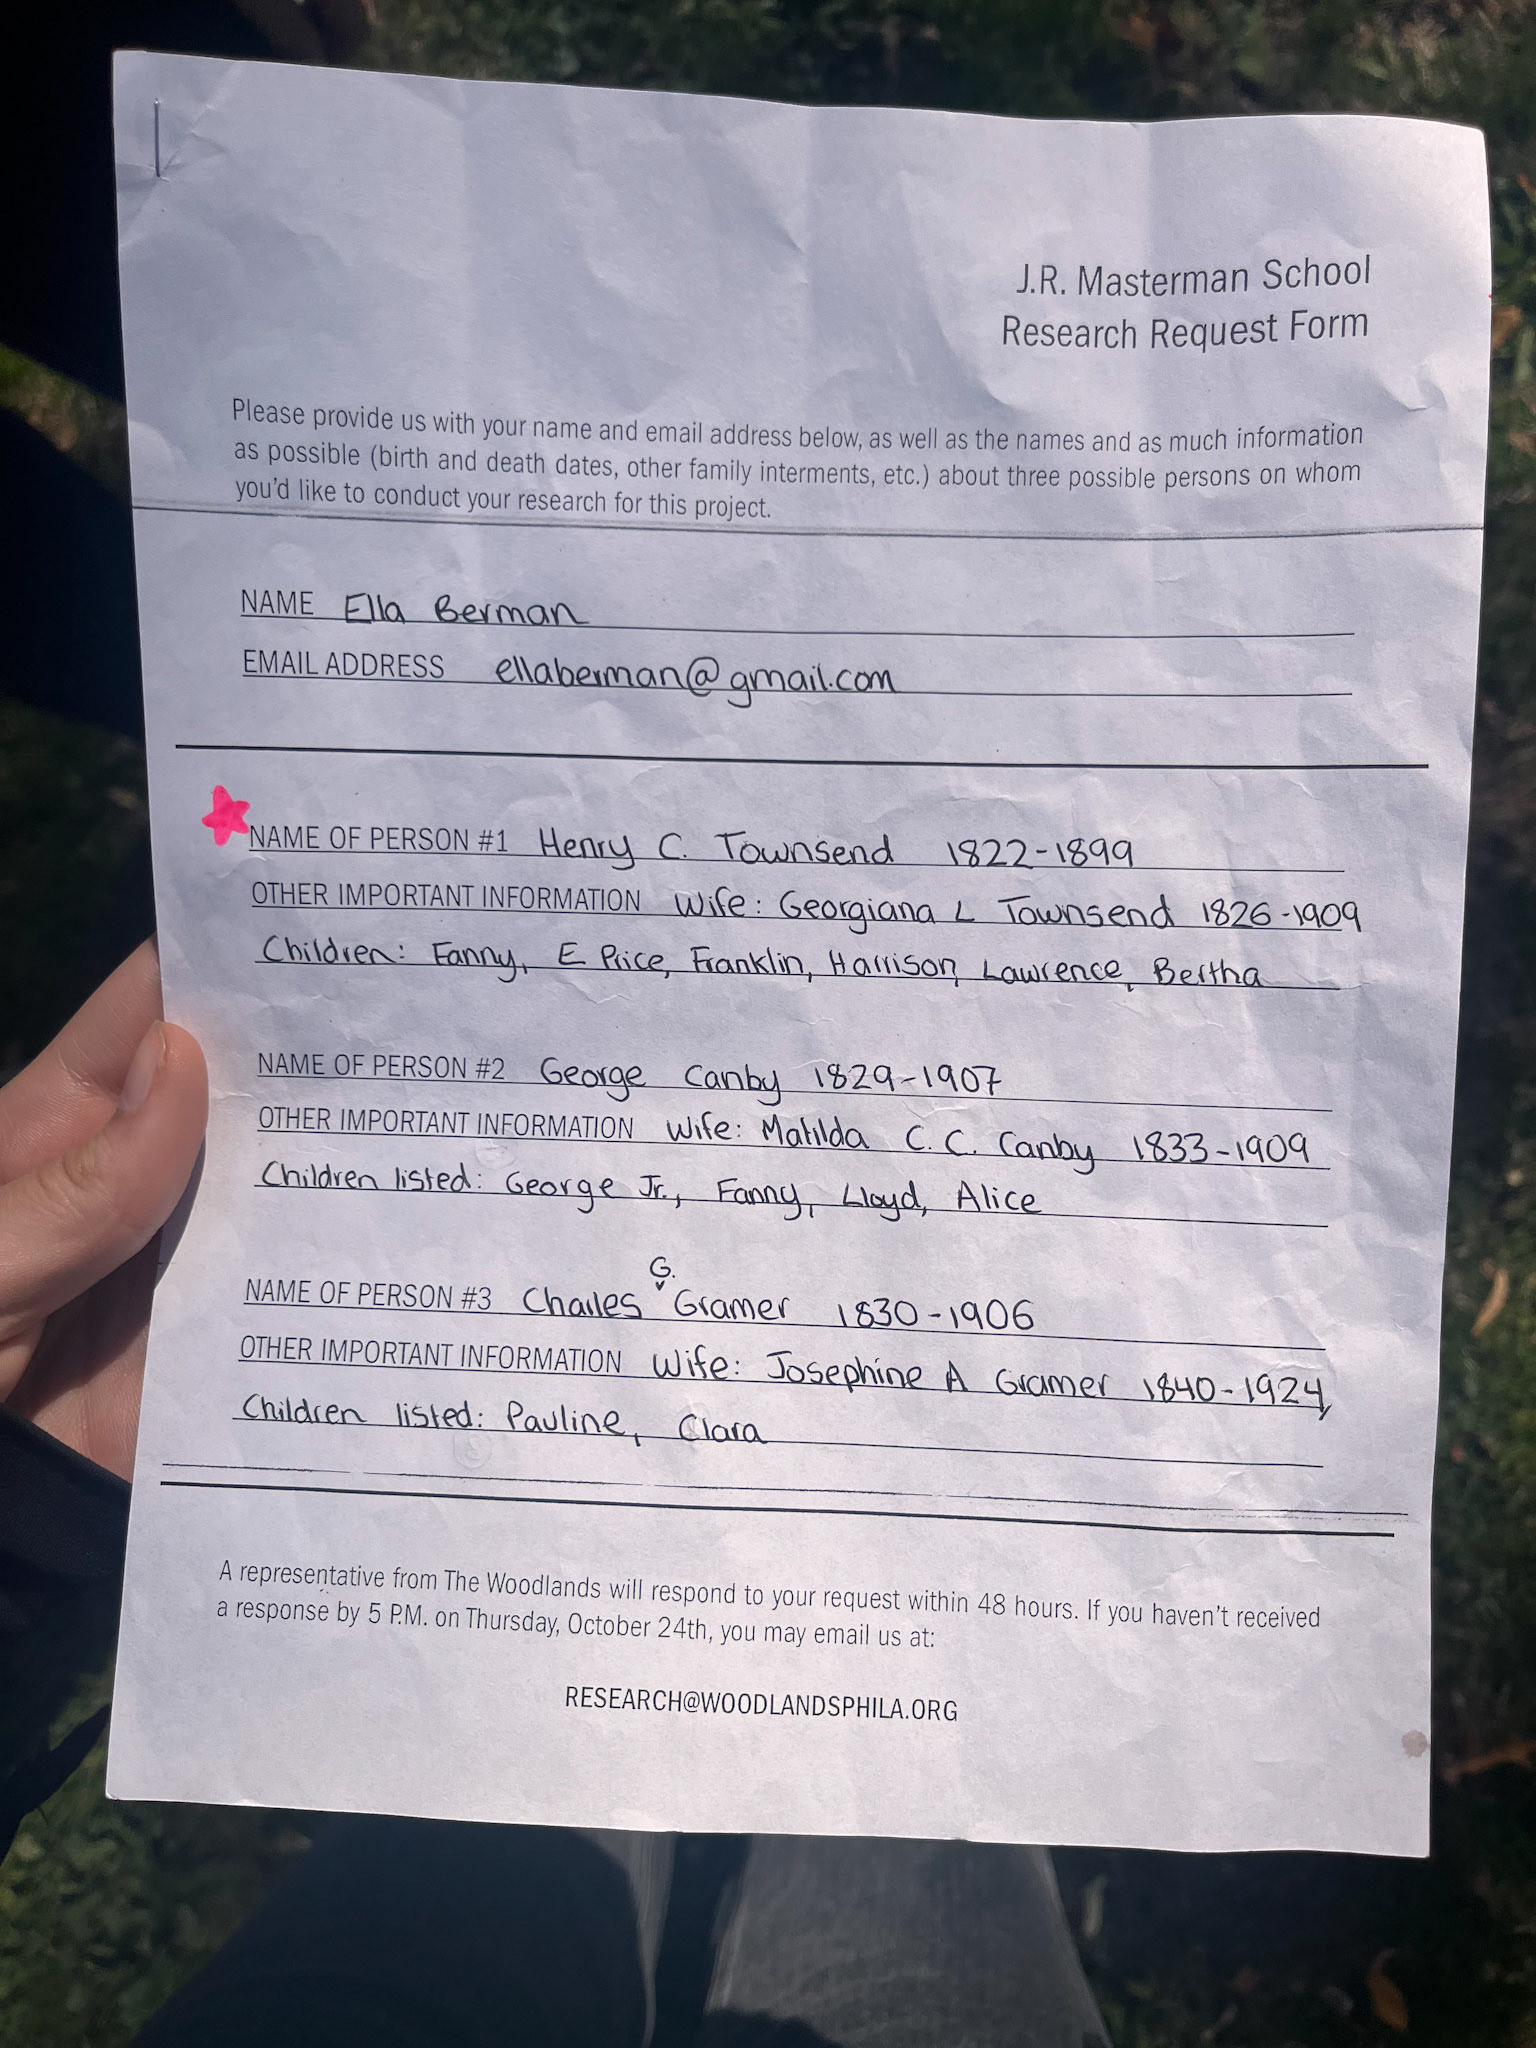 J.R. Masterman School
Research Request Form
Please provide us with your name and email address below, as well as the names and as much information
as possible (birth and death dates, other family interments, etc.) about three possible persons on whom
you'd like to conduct your research for this project.
NAME Ella Berman
EMAIL ADDRESS ellaberman@gmail.com
NAME OF PERSON #1 Henry C. Townsend 1822-1899
OTHER IMPORTANT INFORMATION Wife: Georgiana L Townsend 1826-1909
Children: Fanny, E Price, Franklin, Harrison, Lawrence, Bertha
NAME OF PERSON #2 George Canby 1829-1907
OTHER IMPORTANT INFORMATION Wife: Matilda C. C. Canby 1833-1909
Children listed: George Jr., Fanny, Lloyd, Alice
NAME OF PERSON #3 Charles G. Gramer 1830-1906
OTHER IMPORTANT INFORMATION Wife: Josephine A Gramer 1840-1924,
Children listed: Pauline, Clara
A representative from The Woodlands will respond to your request within 48 hours. If you haven't received
a response by 5 P.M. on Thursday, October 24th, you may email us at:
RESEARCH@WOODLANDSPHILA.ORG